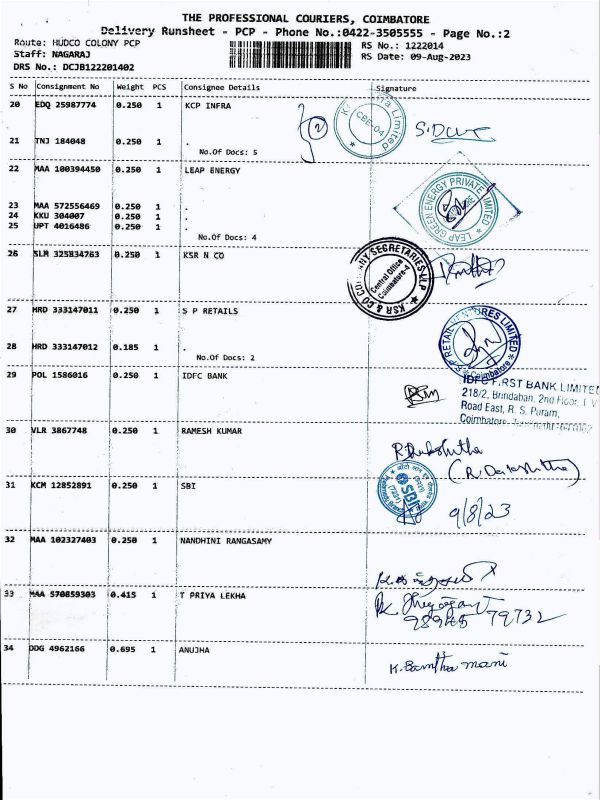 THE PROFESSIONAL COURIERS, COIMBATORE
Delivery Runsheet - PCP - Phone No.:0422-3505555 - Page No.:2
Route: HUDCO COLONY PCP
RS No.: 1222014
Staff: NAGARAJ
RS Date: 09-Aug-2023
DRS No.: DCJB122201402
S No Consignment No Weight PCS Consignee Details Signature
20 EDQ 25987774 0.250 1 KCP INFRA
Limited
CBE-04
2
21 TNJ 184048 0.250 1 .
No.Of Docs: 5
22 MAA 100394450 0.250 1 LEAP ENERGY
LEAP GREEN ENERGY PRIVATE LIMITED
23 MAA 572556469 0.250 1 .
24 KKU 304007 0.250 1 .
25 UPT 4016486 0.250 1 .
No.Of Docs: 4
26 SLM 325834763 0.250 1 KSR N CO
KSR & CO COMPANY SECRETARIES LLP
Central Office
Coimbatore-4
27 HRD 333147011 0.250 1 S P RETAILS
S P RETAIL VENTURES LIMITED
Coimbatore
28 HRD 333147012 0.185 1 .
No.Of Docs: 2
29 POL 1586016 0.250 1 IDFC BANK
IDFC FIRST BANK LIMITED
218/2, Brindaban, 2nd Floor, T V
Road East, R. S. Puram,
Coimbatore
30 VLR 3867748 0.250 1 RAMESH KUMAR
31 KCM 12852891 0.250 1 SBI
SBI
9/8/23
32 MAA 102327403 0.250 1 NANDHINI RANGASAMY
33 MAA 570859303 0.415 1 T PRIYA LEKHA
98945 79732
34 DDG 4962166 0.695 1 ANUJHA